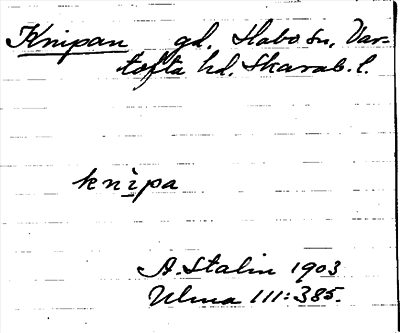 Knipan gd. Habo sn, Var-
tofta hd. Skarab. l.
knìpa
A. Stalin 1903
Ulma 111:385.